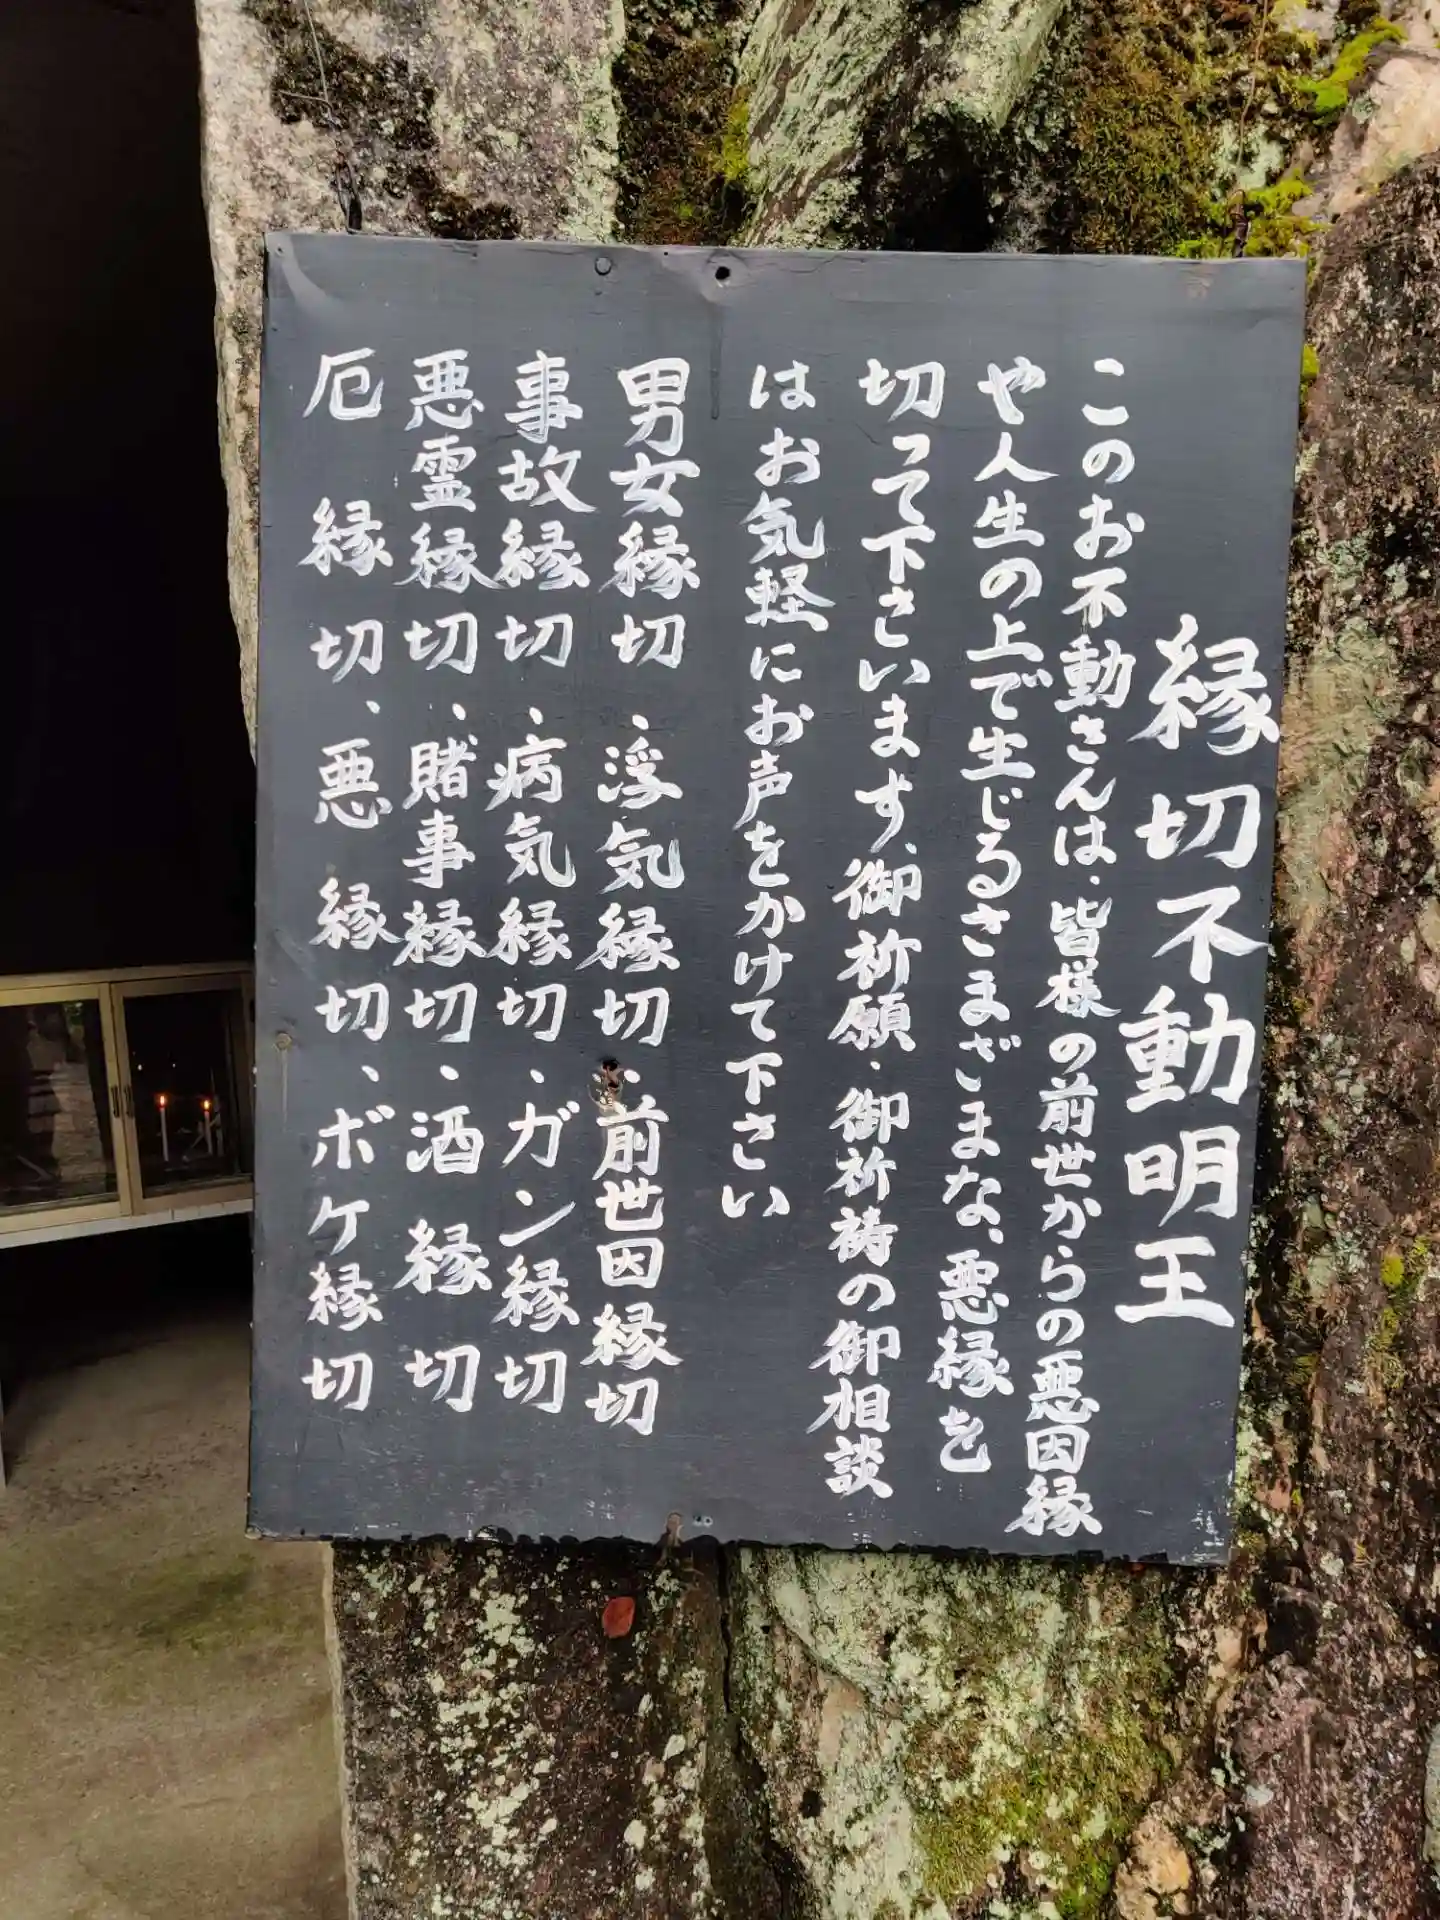 縁切不動明王
このお不動さんは、皆様の前世からの悪因縁
や人生の上で生じるさまざまな、悪縁を
切って下さいます、御祈願、御祈祷の御相談
はお気軽にお声をかけて下さい
男女縁切、浮気縁切、前世因縁切
事故縁切、病気縁切、ガン縁切
悪霊縁切、賭事縁切、酒縁切
厄縁切、悪縁切、ボケ縁切